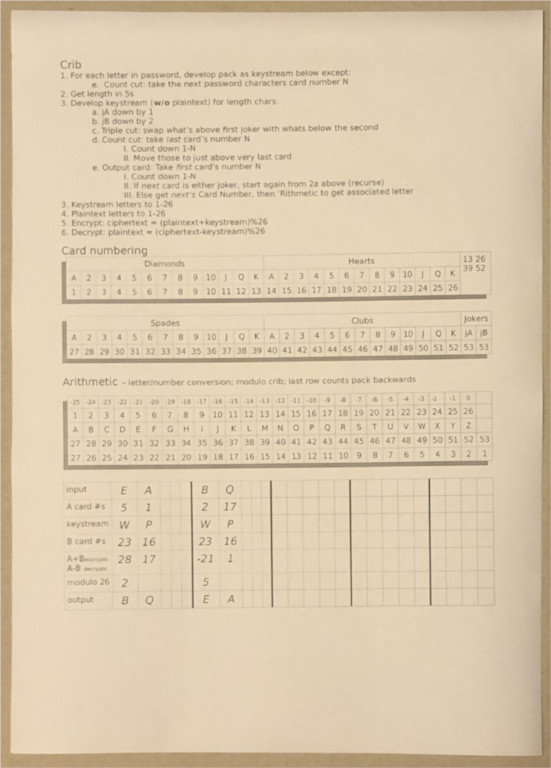 Crib
1. For each letter in password, develop pack as keystream below except:
e. Count cut: take the next password characters card number N
2. Get length in 5s
3. Develop keystream (w/o plaintext) for length chars:
a. jA down by 1
b. jB down by 2
c. Triple cut: swap what's above first joker with whats below the second
d. Count cut: take last card's number N
I. Count down 1-N
II. Move those to just above very last card
e. Output card: Take first card's number N
I. Count down 1-N
II. If next card is either joker, start again from 2a above (recurse)
III. Else get next's Card Number, then 'Rithmetic to get associated letter
3. Keystream letters to 1-26
4. Plaintext letters to 1-26
5. Encrypt: ciphertext = (plaintext+keystream)%26
6. Decrypt: plaintext = (ciphertext-keystream)%26
Card numbering
Diamonds Hearts 13 26
39 52
A 2 3 4 5 6 7 8 9 10 J Q K A 2 3 4 5 6 7 8 9 10 J Q K
1 2 3 4 5 6 7 8 9 10 11 12 13 14 15 16 17 18 19 20 21 22 23 24 25 26
Spades Clubs Jokers
A 2 3 4 5 6 7 8 9 10 J Q K A 2 3 4 5 6 7 8 9 10 J Q K jA jB
27 28 29 30 31 32 33 34 35 36 37 38 39 40 41 42 43 44 45 46 47 48 49 50 51 52 53 53
Arithmetic – letter/number conversion; modulo crib; last row counts pack backwards
-25 -24 -23 -22 -21 -20 -19 -18 -17 -16 -15 -14 -13 -12 -11 -10 -9 -8 -7 -6 -5 -4 -3 -2 -1 0
1 2 3 4 5 6 7 8 9 10 11 12 13 14 15 16 17 18 19 20 21 22 23 24 25 26
A B C D E F G H I J K L M N O P Q R S T U V W X Y Z
27 28 29 30 31 32 33 34 35 36 37 38 39 40 41 42 43 44 45 46 47 48 49 50 51 52 53
27 26 25 24 23 22 21 20 19 18 17 16 15 14 13 12 11 10 9 8 7 6 5 4 3 2 1
input E A B Q
A card #s 5 1 2 17
keystream W P W P
B card #s 23 16 23 16
A+B encrypts 28 17 -21 1
A-B decrypts
modulo 26 2 5
output B Q E A